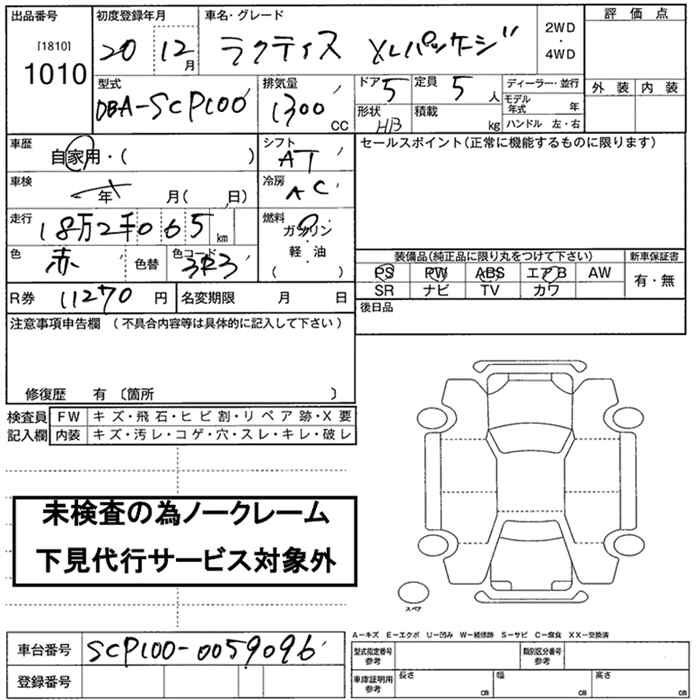 出品番号 初度登録年月 車名・グレード 評価点
[1810] 1010 20 12月 ラクティス XLパッケージ 2WD・4WD
型式 排気量 ドア 5 定員 5人 ディーラー・並行 外装 内装
DBA-SCP100 1300CC 形状 HB 積載 kg モデル年式 年
ハンドル 左・右
車歴 自家用・( ) シフト AT セールスポイント(正常に機能するものに限ります)
車検 年 月( 日) 冷房 AC
走行 18万2千065km 燃料 ガソリン・軽油・( )
色 赤 色替 色コード 3R3 装備品(純正品に限り丸をつけて下さい) 新車保証書
PS PW ABS エアB AW 有・無
SR ナビ TV カワ
R券 11270円 名変期限 月 日 後日品
注意事項申告欄 (不具合内容等は具体的に記入して下さい)
修復歴 有 〔箇所 〕
検査員 FW キズ・飛石・ヒビ割・リペア跡・X要
記入欄 内装 キズ・汚レ・コゲ・穴・スレ・キレ・破レ
未検査の為ノークレーム
下見代行サービス対象外
スペア
A-キズ E-エクボ U-凹み W-補修跡 S-サビ C-腐食 XX-交換済
車台番号 SCP100-0059096 型式指定番号 参考 類別区分番号 参考
登録番号 車庫証明用 参考 長さ cm 幅 cm 高さ cm